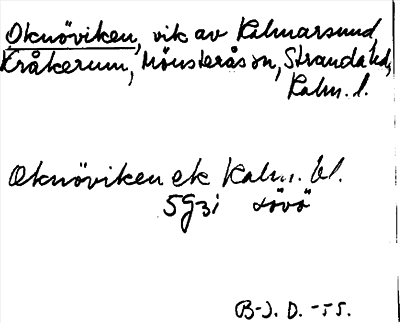 Oknöviken, vik av Kalmarsund,
Kråkerum, Mönsterås sn, Stranda hd,
Kalm. l.
Oknöviken ek Kalm. bl.
5G3i Lövö
B-J. D. -55.